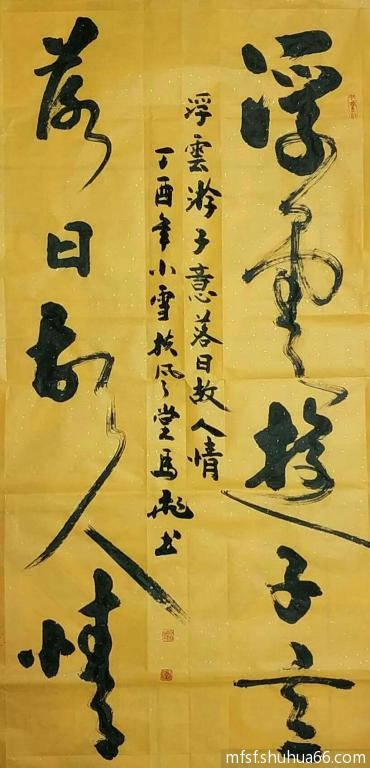 浮雲遊子意
浮雲游子意落日故人情
丁酉年小雪扶风堂馬书
落日故人情
mfsf.shuhua66.com